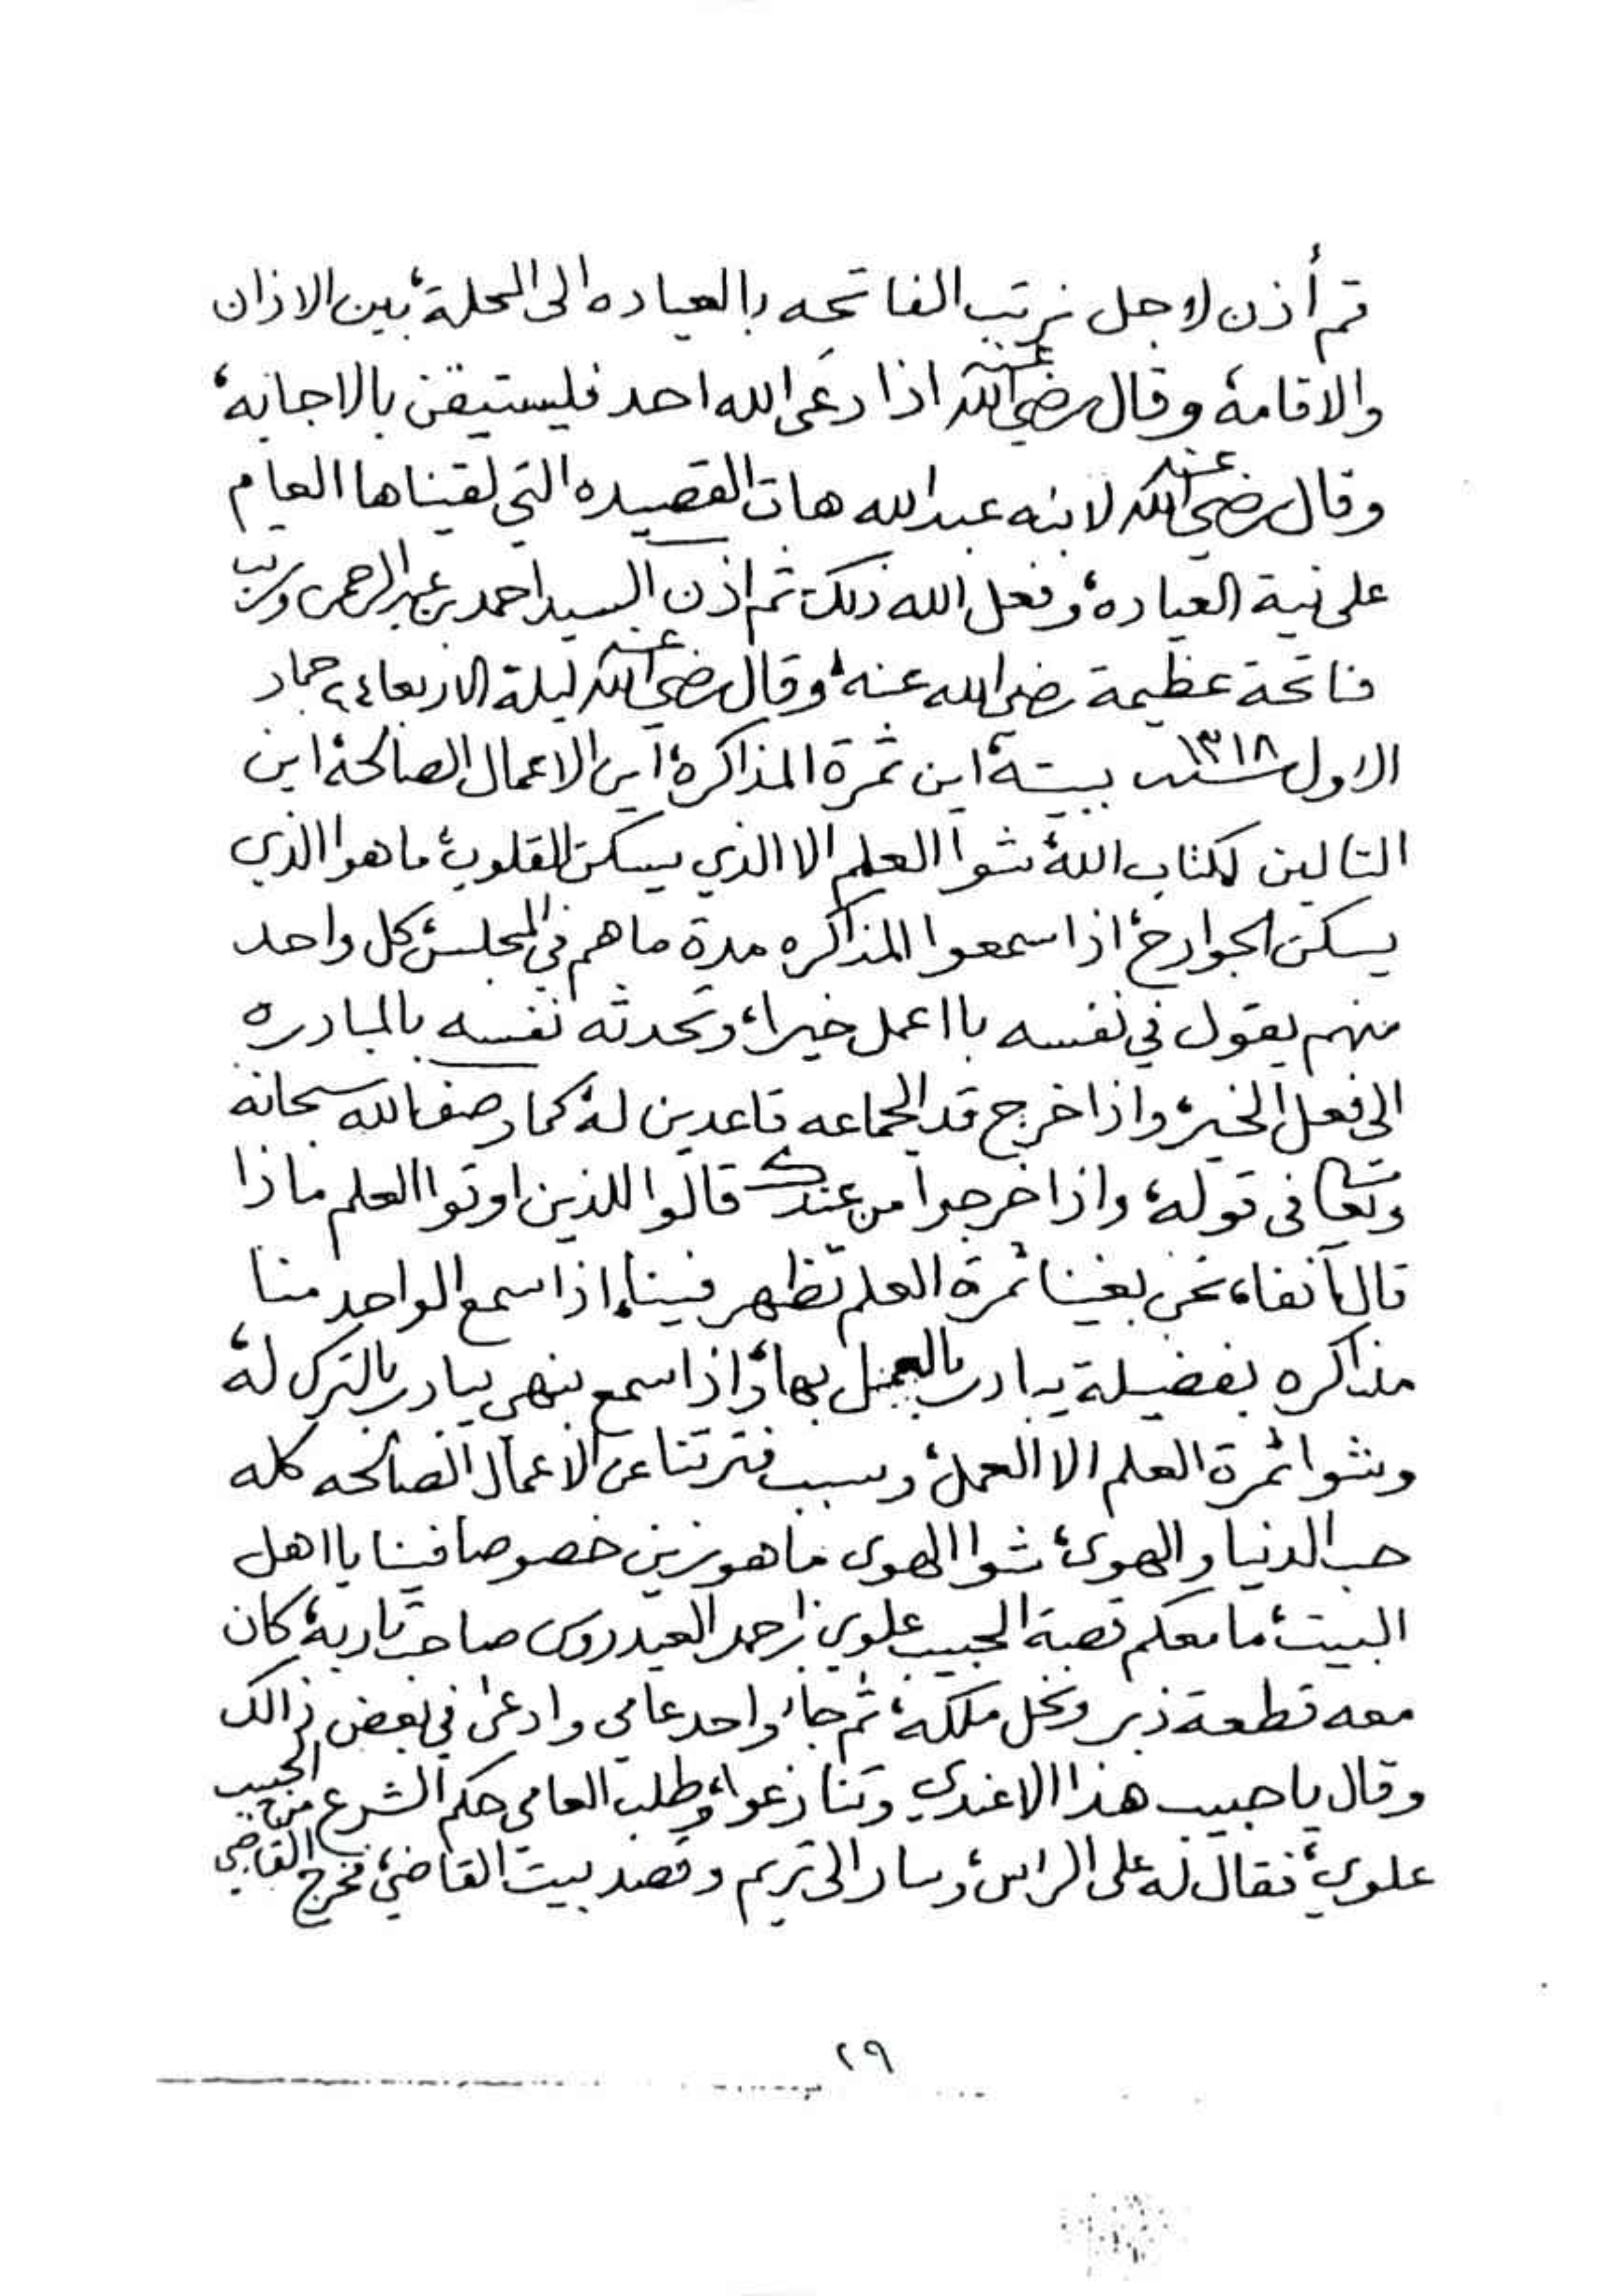 قم أذن لاجل نرتب الفاتحه بالعياده الى المحلة، بين الاذان
والاقامة، وقال رضي الله عنه اذا دعى الله احد فليستيقن بالاجابه،
وقال رضي الله عنه لابنه عبدالله هات القصيده التي لقيناها العام
على نية العياده، وفعل الله ذلك ثم اذن السيد احمد بن عبدالرحمن ورتب
فاتحة عظيمة رضي الله عنه، وقال رضي الله عنه ليلة الاربعاء ٢٤ جماد
الاول سنة ١٣١٨ ببيته، اين ثمرة المذاكرة، اين الاعمال الصالحة، اين
التالين لكتاب الله، شوا العلم الا الذي يسكن القلوب، ما هوا الذي
يسكن الجوارح، اذا سمعوا المذاكره مدة ما هم في المجلس، كل واحد
منهم يقول في نفسه باا عمل خيرا، وتحدثه نفسه بالمبادره
الى فعل الخير، واذا خرج قد الجماعه قاعدين له، كما وصف الله سبحانه
وتعالى في قوله، واذا خرجوا من عندك قالوا للذين اوتوا العلم ماذا
قال آنفا، نحن بغينا ثمرة العلم تظهر فينا، اذا سمع الواحد منا
مذاكره بفضيلة يبادر بالعمل بها، واذا سمع بنهي يبادر بالترك له،
وشوا ثمرة العلم الا العمل، وسبب فترتنا عن الاعمال الصالحه كله
حب الدنيا والهوى، شوا الهوى ما هو زين خصوصا فينا يا اهل
البيت، ما معكم قصة الحبيب علوي بن احمد العيدروس صاحب ثاربة، كان
معه قطعة ذبر ونخل ملكه، ثم جاء واحد عامي وادعى في بعض ذالك
وقال يا حبيب هذا الا عندي وتنازعوا، وطلب العامي حكم الشرع من الحبيب
علوي، فقال له على الراس، وسار الى تريم وقصد بيت القاضي، فخرج القاضي
٢٩